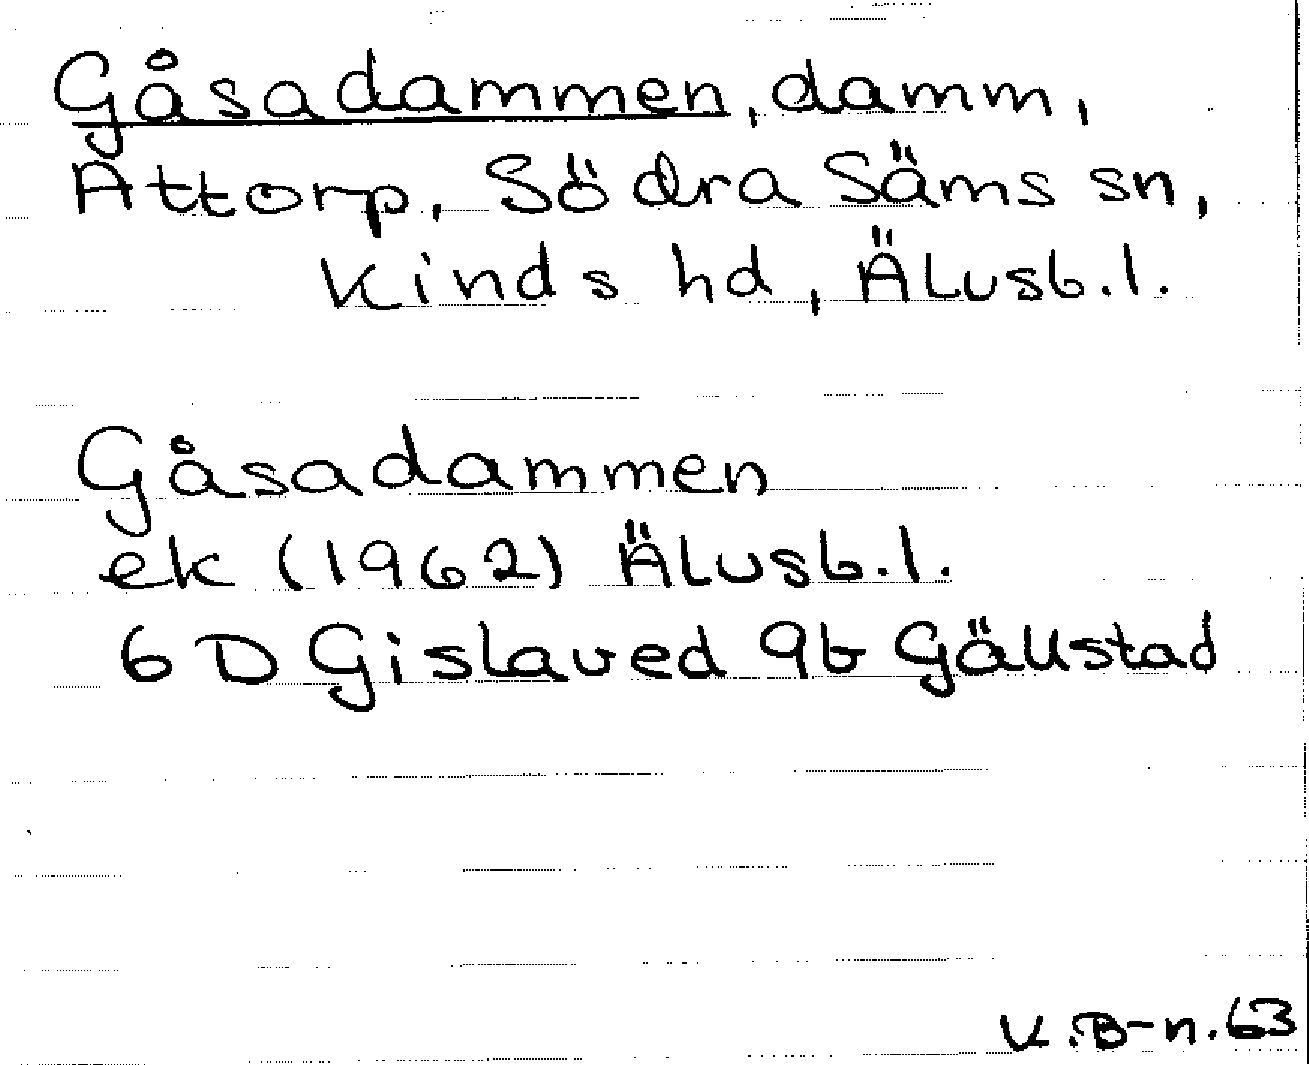 Gåsadammen, damm,
Attorp, Södra Säms sn,
Kinds hd, Älvsb.l.
Gåsadammen
ek (1962) Älvsb.l.
6 D Gislaved 9b Gällstad
K.B-n.63